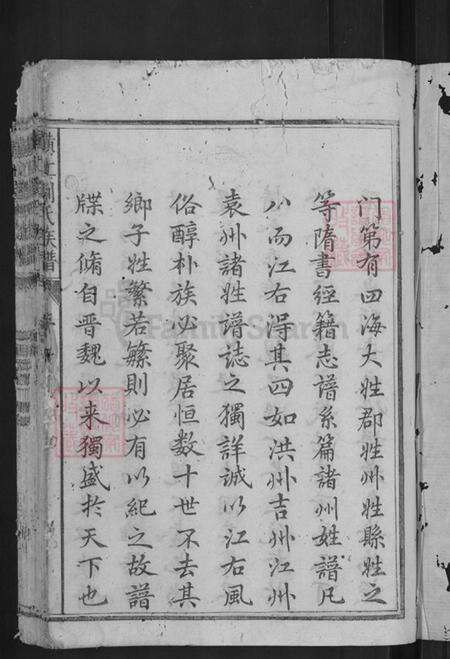 门第有四海大姓郡姓州姓縣姓之
等隋書經籍志譜系篇諸州姓譜凡
八而江右得其四如洪州吉州江州
袁州諸姓譜誌之獨詳誠以江右風
俗醇朴族必聚居恒数十世不去其
鄉子姓繁若繁則必有以紀之故譜
牒之脩自晋魏以来獨盛於天下也
氏族譜
FamilySearch